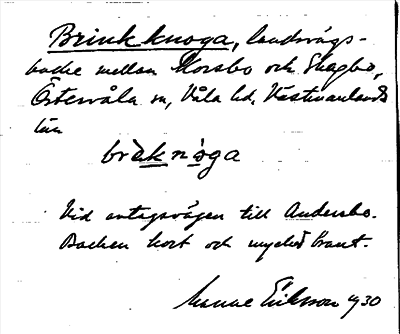 Brinkknoga, landsvägs-
backe mellan Horsbo och Skogbo,
Östervåla sn, Våla hd, Västmanlands
län
bràknòga
Vid avtagsvägen till Andersbo.
Backen kort och mycket brant.
Manne Eriksson 1930